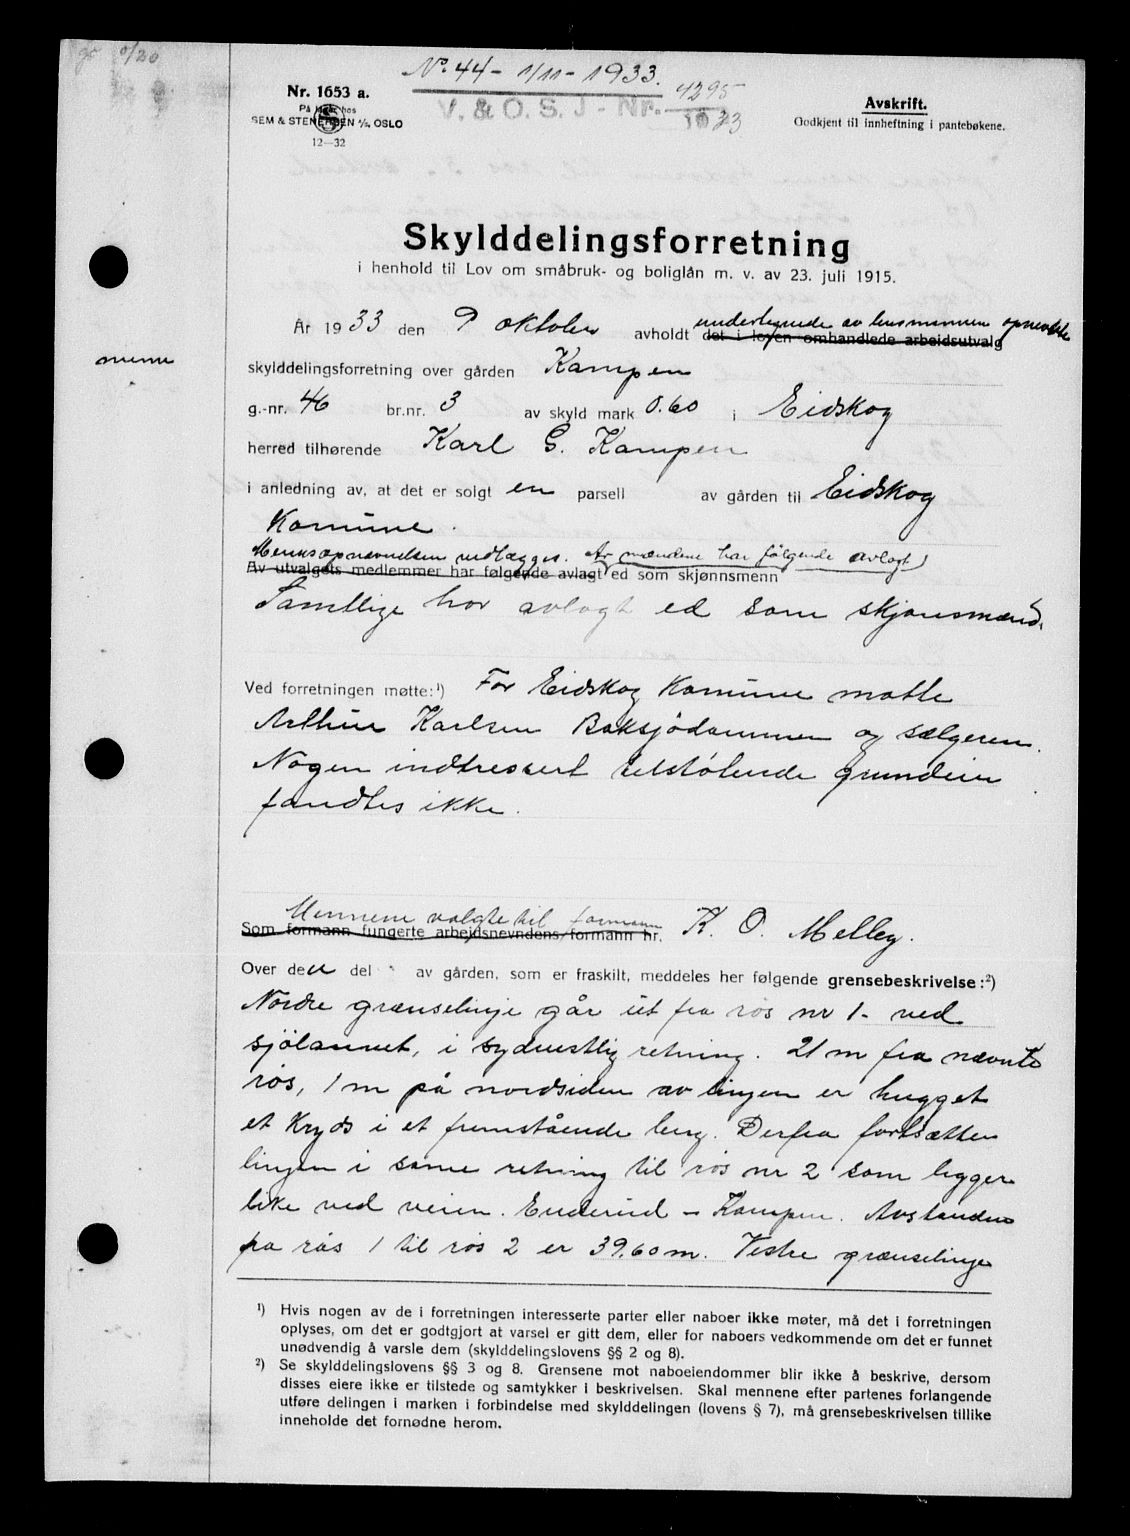 No. 44 - 1/11 - 1933.
Nr. 1653 a.
På lager hos
SEM & STENERSEN A/S, OSLO
12—32
V. & O. S. J - Nr. 4295
1933
Avskrift.
Godkjent til innheftning i pantebøkene.
Skylddelingsforretning
i henhold til Lov om småbruk- og boliglån m. v. av 23. juli 1915.
undertegnede av lensmannen opnevnte
År 1933 den 9 oktober avholdt det i loven omhandlede arbeidsutvalg
menn
skylddelingsforretning over gården Kampen
g.-nr. 46 br.nr. 3 av skyld mark 0.60 i Eidskog
herred tilhørende Karl G. Kampen
i anledning av, at det er solgt en parsell av gården til Eidskog
Komune.
Mennsopnævnelsen vedlægges. Av mændene har følgende avlagt
Av utvalgets medlemmer har følgende avlagt ed som skjønnsmenn
Samtlige har avlagt ed som skjønsmænd.
Ved forretningen møtte:¹) For Eidskog Komune møtte
Arthur Karlsen Baksjødammen og sælgeren.
Nogen indtressert tilstøtende grundeier
fandtes ikke.
Mennene valgte til formann
Som formann fungerte arbeidsnevndens formann hr. K. O. Melby.
Over den del av gården, som er fraskilt, meddeles her følgende grensebeskrivelse:²)
Nordre grænselinje går ut fra røs nr 1- ved
sjølannet, i sydvestlig retning. 21 m fra nævnte
røs, 1 m på nordsiden av linjen er hugget
et Kryds i et fremstående berg. Derfra fortsætter
linjen i same retning til røs nr 2 som ligger
like ved veien. Enderud - Kampen. Avstanden
fra røs 1 til røs 2 er 39.60 m. Vestre grænselinje
¹) Hvis nogen av de i forretningen interesserte parter eller naboer ikke møter, må det i forretningen
oplyses, om det er godtgjort at varsel er gitt dem, eller for naboers vedkommende om det er funnet
unødvendig å varsle dem (skylddelingslovens §§ 2 og 8).
²) Se skylddelingslovens §§ 3 og 8. Grensene mot naboeiendommer blir ikke å beskrive, dersom
disses eiere ikke er tilstede og samtykker i beskrivelsen. Skal mennene efter partenes forlangende
utføre delingen i marken i forbindelse med skylddelingen (lovens § 7), må grensebeskrivelsen tillike
inneholde det fornødne herom.